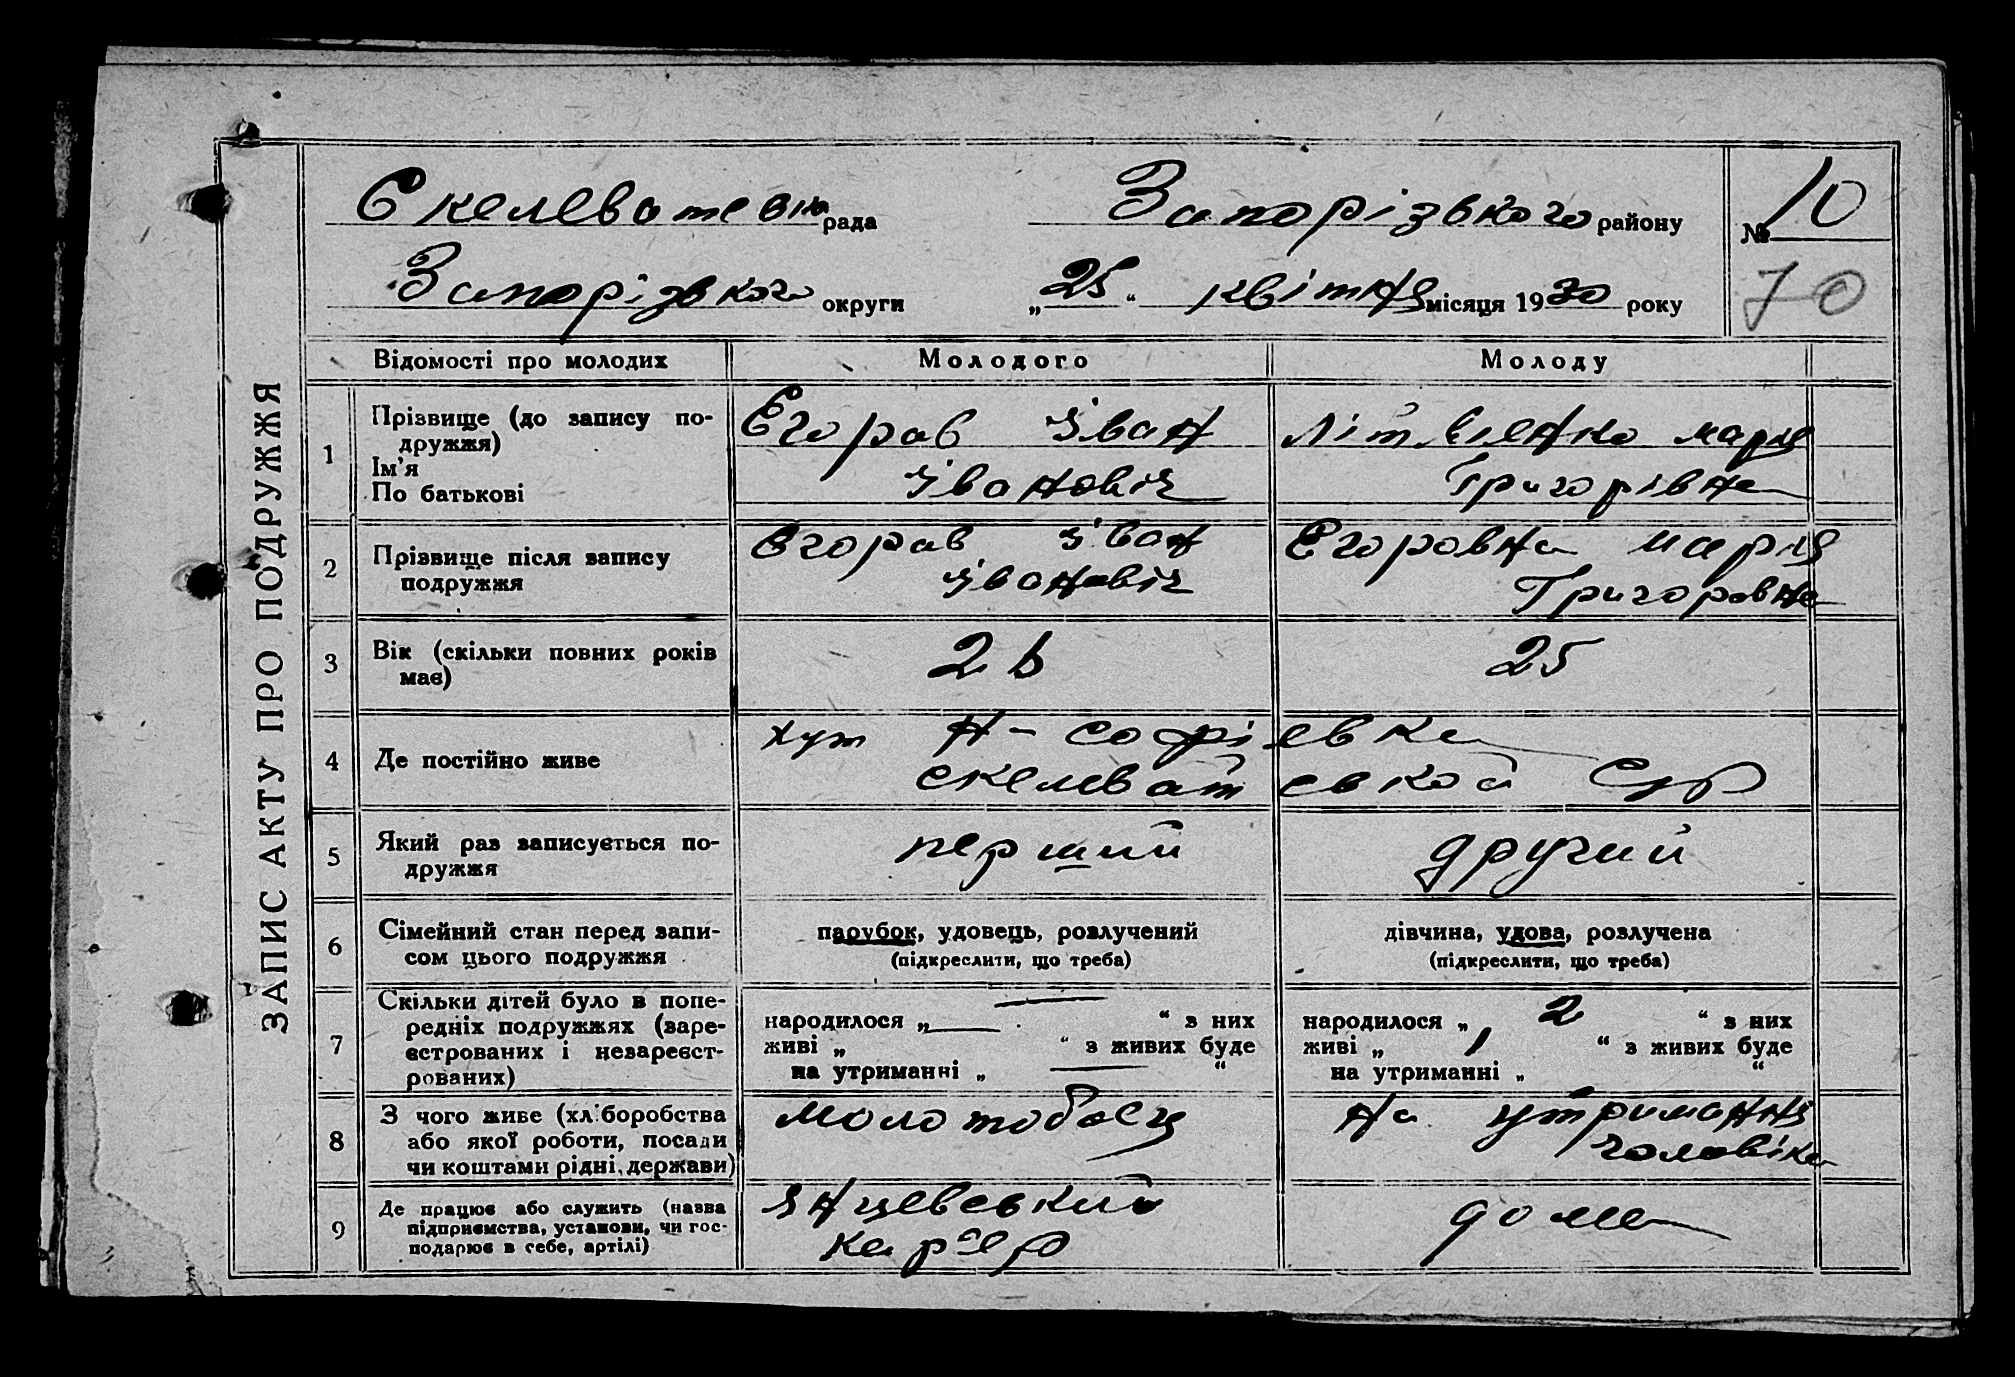 ЗАПИС АКТУ ПРО ПОДРУЖЖЯ
Скелеватсвка рада Запорізького району № 10
Запорізького округи „25“ квітня місяця 1930 року 70
Відомості про молодих Молодого Молоду
1 Прізвище (до запису подружжя)
Ім'я
По батькові
Єгорав Іван
Івановіч
Літвіенко Марія
Григорівна
2 Прізвище після запису
подружжя
Єгорав Іван
Івановіч
Егоровна Марія
Григоровна
3 Вік (скільки повних років
має)
26 25
4 Де постійно живе
хут Н-Софіевка
Скелеватевкой С/Р
5 Який раз записується по-
дружжя
перший другий
6 Сімейний стан перед запи-
сом цього подружжя
парубок, удовець, розлучений
(підкреслити, що треба)
дівчина, удова, розлучена
(підкреслити, що треба)
7 Скільки дітей було в попе-
редніх подружжях (заре-
єстрованих і незареєст-
рованих)
народилося „—“ з них
живі „ “ з живих буде
на утриманні „ — “
народилося „ 2 “ з них
живі „ 1 “ з живих буде
на утриманні „ “
8 З чого живе (хліборобства
або якої роботи, посади
чи коштами рідні, держави)
Молотобоец
на утриманні
чоловіка
9 Де працює або служить (назва
підприємства, установи, чи гос-
подарює в себе, артілі)
Янцевський
кар'єр
дома